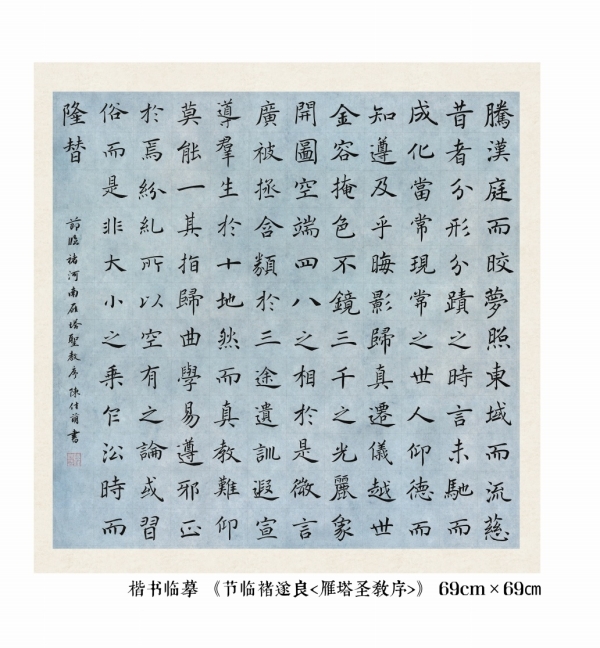 騰漢庭而皎夢照東域而流慈
昔者分形分蹟之時言未馳而
成化當常現常之世人仰德而
知遵及乎晦影歸真遷儀越世
金容掩色不鏡三千之光麗象
開圖空端四八之相於是微言
廣被拯含類於三途遺訓遐宣
導羣生於十地然而真教難仰
莫能一其指歸曲學易遵邪正
於焉紛糺所以空有之論或習
俗而是非大小之乘乍沿時而
隆替
節臨褚河南雁塔聖教序 陳書
楷书临摹 《节临褚遂良<雁塔圣教序>》 69cm×69cm